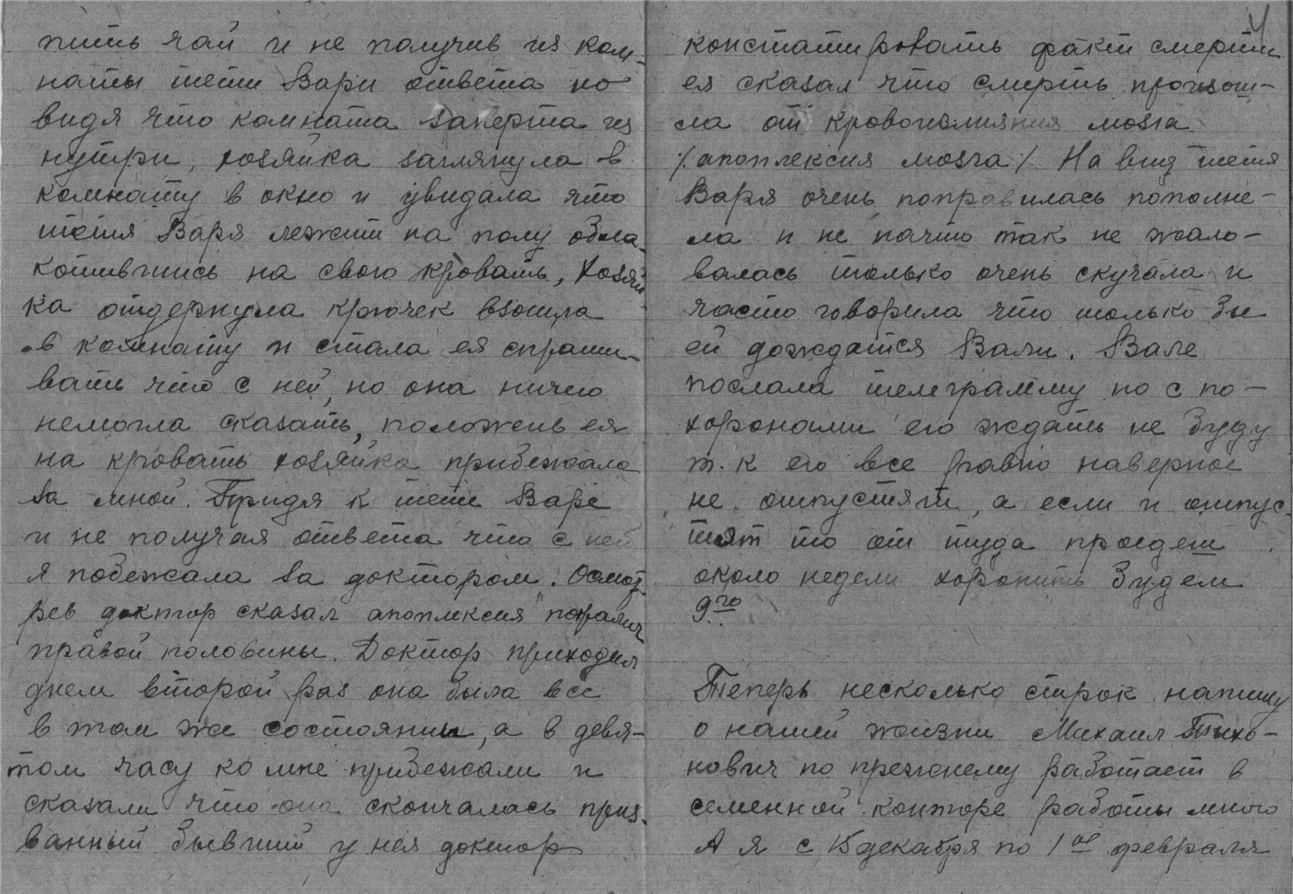 пить чай и не получив из ком-
наты тети Вари ответа но
видя что комната заперта из
нутри, хозяйка заглянула в
комнату в окно и увидала что
тетя Варя лежит на полу обла-
котившись на свою кровать, хозяй-
ка отдернула крючек взошла
в комнату и стала ея спраши-
вать что с ней, но она ничго
немогла сказать, положив ея
на кровать хозяйка прибежала
за мной. Придя к тете Варе
и не получая ответа что с ней
я побежала за доктором. Осмот-
рев доктор сказал апоплексия паралич
правой половины. Доктор приходил
днем второй раз она была все
в том же состоянии, а в девя-
том часу ко мне прибежали и
сказали что она скончалась приз-
ванный бывший у нея доктор
4
констатировать факт смерти
ея сказал что смерть произош-
ла от кровоизлияния мозга
/апоплексия мозга/ На вид тетя
Варя очень поправилась пополне-
ла и не начто так не жало-
валась только очень скучала и
часто говорила что только бы
ей дождатся Вали. Вале
послала телеграмму но с по-
хоронами его ждать не буду
т.к его все равно наверное
не отпустят, а если и отпус-
тят то от туда проедет
около недели хоронить будем
9го
Теперь несколько строк напишу
о нашей жизни Михаил Тихо-
нович по прежнему работает в
семенной конторе работы много
А я с 15 декабря по 1ое февраля